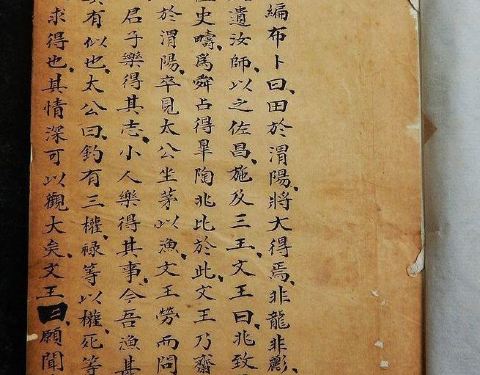 編布卜曰、田於渭陽、將大得焉、非龍非彲、
遺汝師、以之佐昌、施及三王、文王曰、兆致
史疇、爲舜占得皐陶、兆比於此、文王乃齋
於渭陽、卒見太公坐茅以漁、文王勞而問
君子樂得其志、小人樂得其事、今吾漁甚
有似也、太公曰、釣有三權、禄等以權、死等
求得也、其情深、可以觀大矣、文王願聞